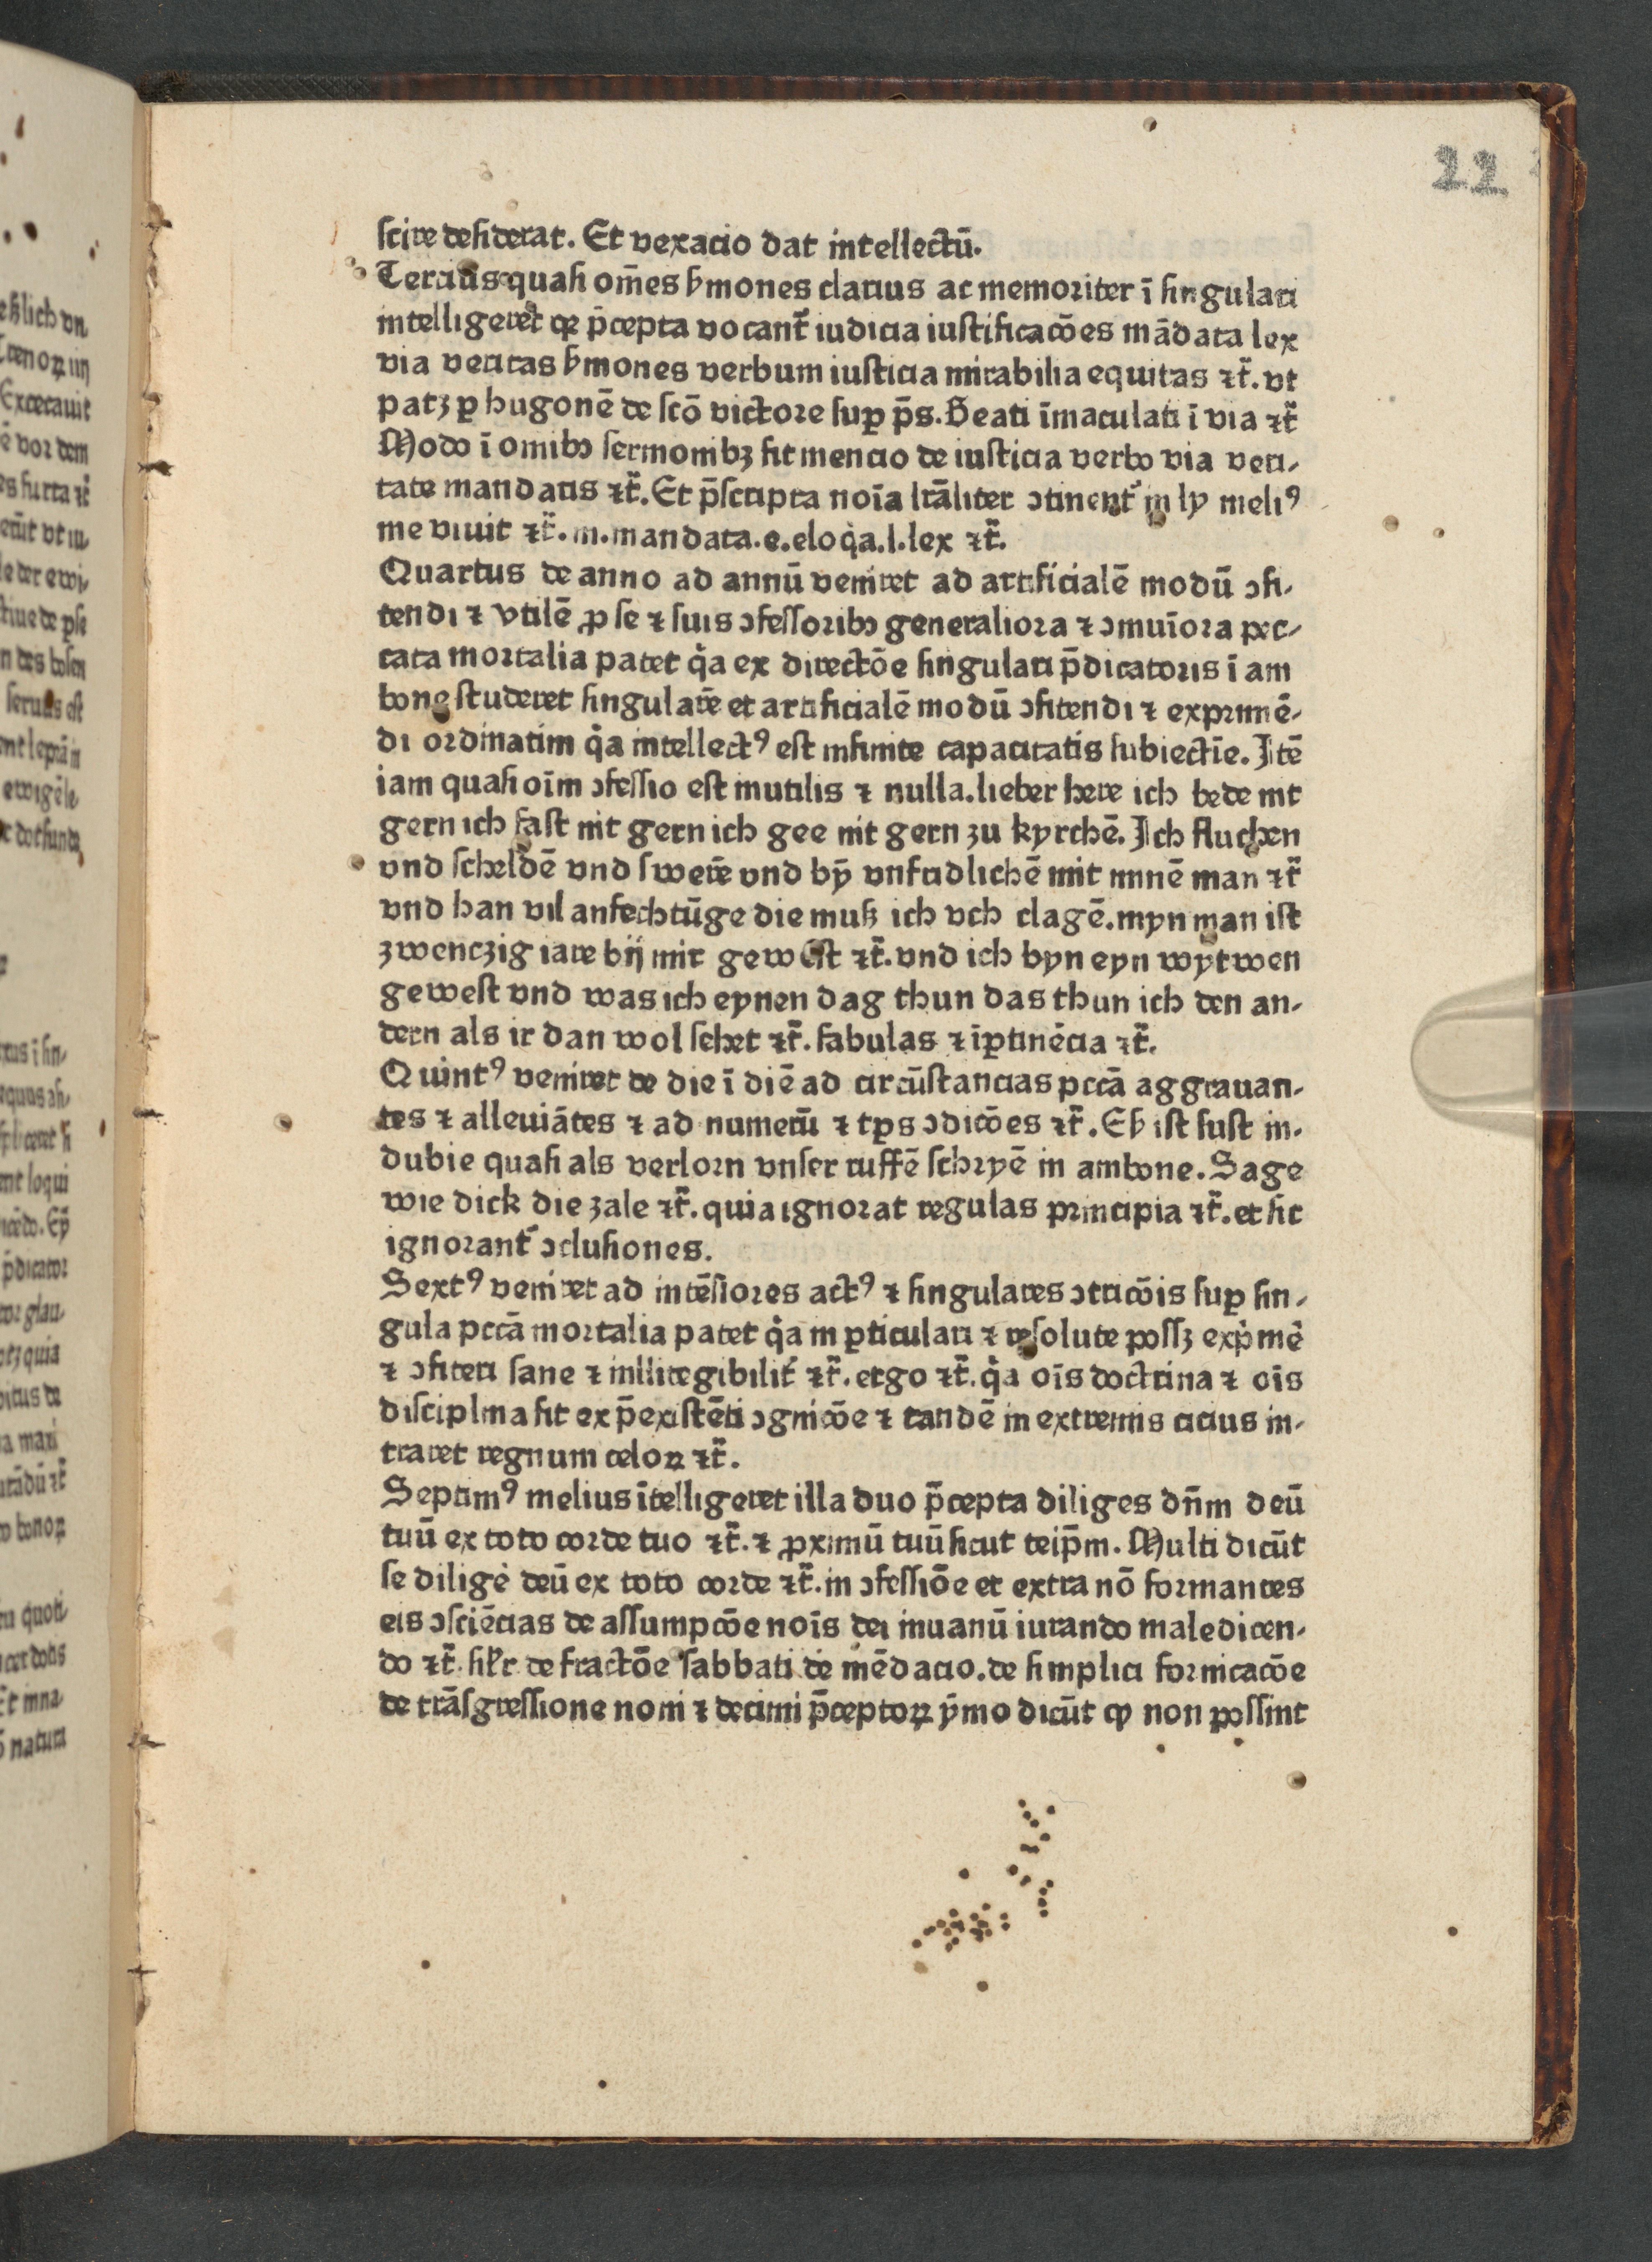 22
scire desiderat. Et vexacio dat intellectū.
Tercius quasi om̄es ẜmones clarius ac memoriter ī singulari
intelligeret qꝛ p̄cepta vocant᷑ iudicia iustificacōes mādata lex
via veritas ẜmones verbum iusticia mirabilia equitas ⁊c̄. vt
patꝫ ꝑ hugonē de scō victore suꝑ p̄s. Beati īmaculati ī via ⁊c̄
Modo ī omibꝰ sermonibꝫ fit mencio de iusticia verbo via veri-
tate mandatis ⁊c̄. Et p̄scripta noīa lrāliter ꝯtinent᷑ in ly meliꝰ
me viuit ⁊c̄. m. mandata. e. eloq̇a. l. lex ⁊c̄.
Quartus de anno ad annū veniret ad artificialē modū ꝯfi-
tendi ⁊ vtilē ꝓ se ⁊ suis ꝯfessoribꝰ generaliora ⁊ ꝯmuīora pec-
cata mortalia patet q̇a ex directōe singulari p̄dicatoris ī am
bone studeret singularē et artificialē modū ꝯfitendi ⁊ exprimē-
di ordinatim q̇a intellectꝰ est infinite capacitatis subiectīe. Itē
iam quasi oīm ꝯfessio est inutilis ⁊ nulla. lieber here ich bede nit
gern ich fast nit gern ich gee nit gern zu kyrchē. Ich fluchen
vnd scheldē vnd swerē vnd bȳ vnfridlichē mit mnnē man ⁊c̄
vnd han vil anfechtūge die muß ich vch clagē. myn man ist
zwenczig iare bij mir gewest ⁊c̄. vnd ich byn eyn wytwen
gewest vnd was ich eynen dag thun das thun ich den an-
dern als ir dan wol sehet ⁊c̄. fabulas ⁊ īꝑtinēcia ⁊c̄.
Quintꝰ veniret de die ī diē ad circūstancias pccā aggrauan-
tes ⁊ alleuiātes ⁊ ad numerū ⁊ tꝑs ꝯdicōes ⁊c̄. Eß ist sust in-
dubie quasi als verlorn vnser ruffē schryē in ambone. Sage
wie dick die zale ⁊c̄. quia ignorat regulas principia ⁊c̄. et sic
ignorant᷑ ꝯclusiones.
Sextꝰ veniret ad intēsiores actꝰ ⁊ singulares ꝯtricōis suꝑ sin-
gula pccā mortalia patet q̇a in ꝑticulari ⁊ resolute possꝫ exp̄mē
⁊ ꝯfiteri sane ⁊ intlitegibilit᷑ ⁊c̄. ergo ⁊c̄. q̇a oīs doctrina ⁊ oīs
disciplina fit ex p̄existēti ꝯgnicōe ⁊ tandē in extremis cicius in-
traret regnum celoꝝ ⁊c̄.
Septimꝰ melius ītelligeret illa duo p̄cepta diliges dn̄m deū
tuū ex toto corde tuo ⁊c̄. ⁊ ꝓximū tuū sicut teip̄m. Multi dicūt
se diligē deū ex toto corde ⁊c̄. in ꝯfessiōe et extra nō formantes
eis ꝯsciēcias de assumpcōe noīs dei inuanū iurando maledicen-
do ⁊c̄. silr̄ de fractōe sabbati de mēdacio. de simplici fornicacōe
de trāsgressione noni ⁊ decimi p̄ceptoꝝ ẏmo dicūt ꝙ non possint